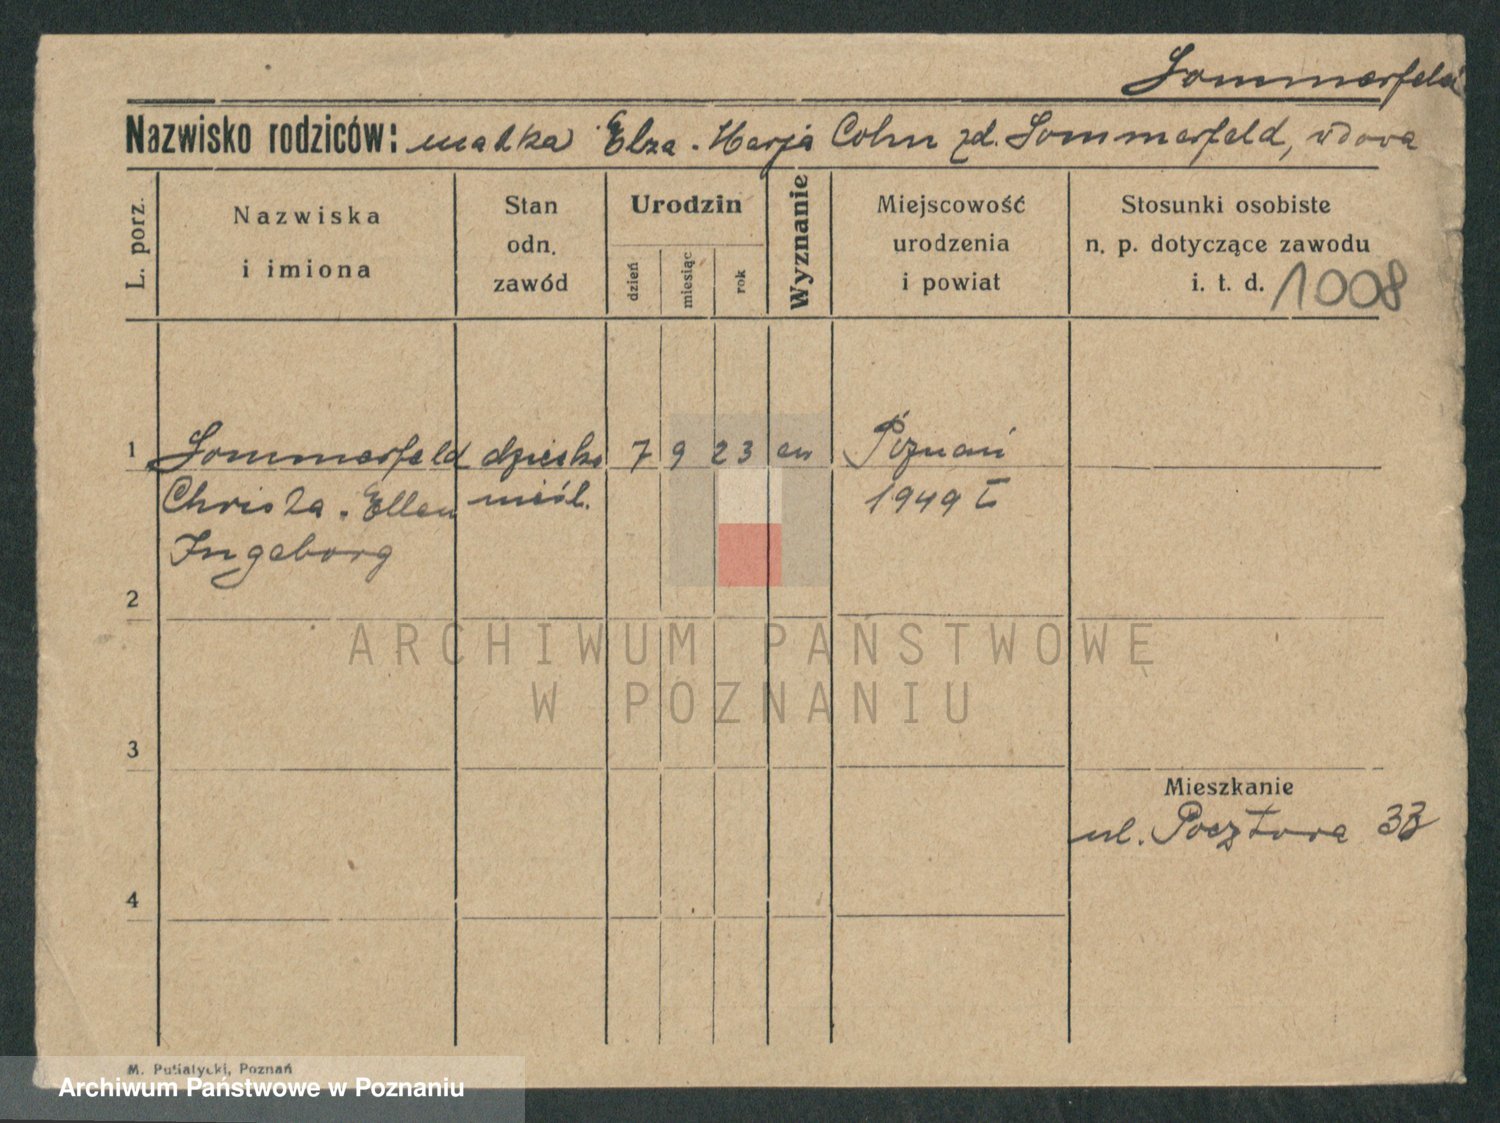 Sommerfeld
Nazwisko rodziców: matka Elza-Marja Cohn zd. Sommerfeld, wdowa
L. porz.
Nazwiska
i imiona
Stan
odn.
zawód
Urodzin
dzień
miesiąc
rok
Wyznanie
Miejscowość
urodzenia
i powiat
Stosunki osobiste
n. p. dotyczące zawodu
i. t. d. 1008
1 Sommerfeld dziecko 7 9 23 ew Poznań
Christa-Ellen nieśl. 1949 I
Ingeborg
2
ARCHIWUM PAŃSTWOWE
W POZNANIU
3
Mieszkanie
ul. Pocztowa 33
4
M. Putiatycki, Poznań
Archiwum Państwowe w Poznaniu